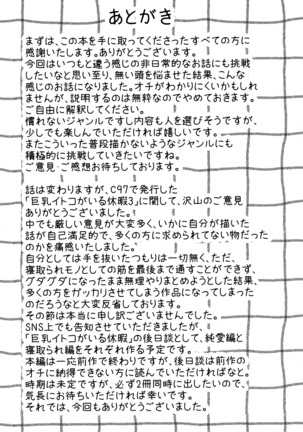 あとがき
まずは、この本を手に取ってくださったすべての方に
感謝いたします。ありがとうございます。
今回はいつもと違う感じの非日常的なお話にも挑戦
したいなと思い至り、無い頭を悩ませた結果、こんな
感じのお話になりました。オチがわかりにくいかもしれ
ませんが、説明するのは無粋なのでやめておきます。
ご自由に解釈してください。
慣れないジャンルですし内容も人を選びそうですが、
少しでも楽しんでいただければ嬉しいです。
またこういった普段描かないようなジャンルにも
積極的に挑戦していきたいですね。
ご意見・ご感想お待ちしております。
話は変わりますが、C97で発行した
「巨乳イトコがいる休暇3」に関して、沢山のご意見
ありがとうございました。
中でも厳しい意見が大変多く、いかに自分が描いた
話が自己満足的で、多くの方に求められてない物だった
のかを痛感いたしました。
自分としては手を抜いたつもりは一切無く、ただ、
寝取られモノとしての筋を最後まで通すことができず、
グダグダになったまま無理やりまとめようとした結果、
多くの方をガッカリさせてしまう作品になってしまった
のだろうなと大変反省しております。
その節は本当に申し訳ございませんでした。
SNS上でも告知させていただきましたが、
「巨乳イトコがいる休暇3」の後日談として、純愛編と
寝取られ編をそれぞれ作る予定です。
本編は一応前作で終わりですが、後日談は前作の
オチに納得できない方に読んでいただければなと。
時期は未定ですが、必ず2冊同時に出したいので、
気長にお待ちいただければ幸いです。
それでは、今回もありがとうございました。